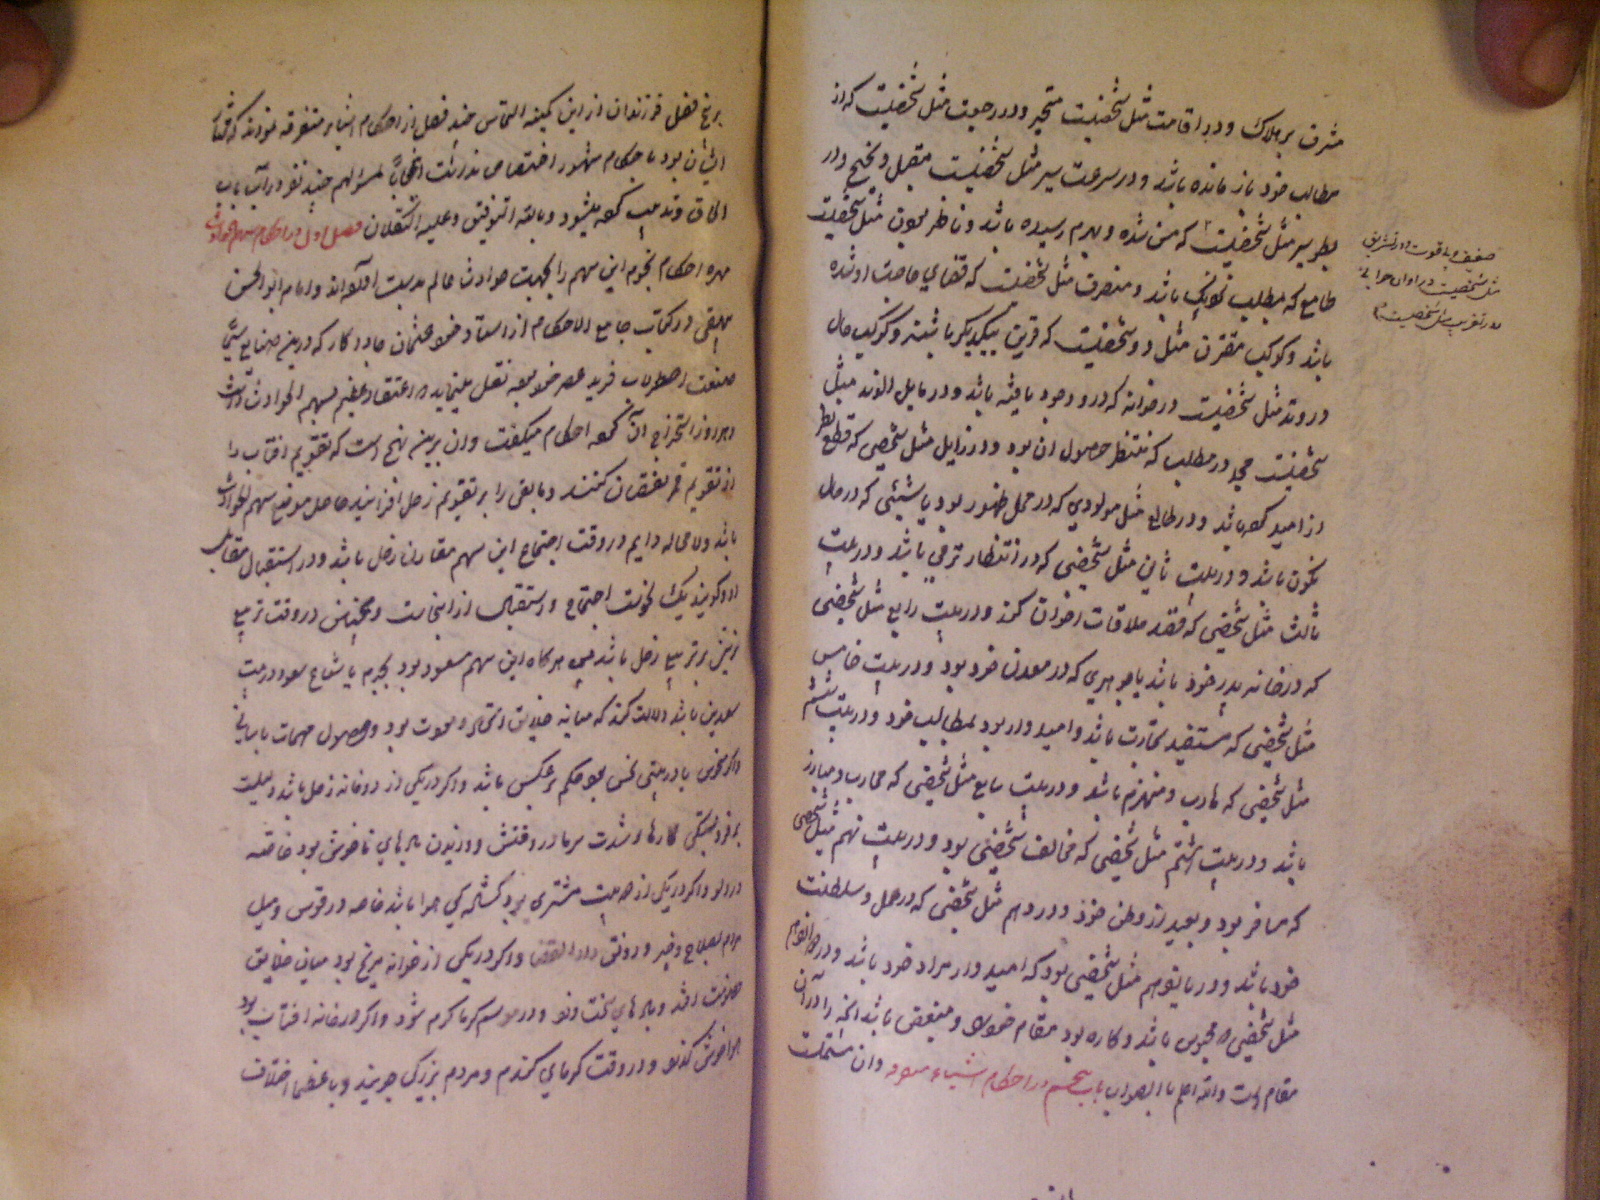 مشرف بر هلاک و در اقامت مثل شخصیت متحیر و در رجعت مثل شخصیت که از
مطالب خود باز مانده باشد و در سرعت سیر مثل شخصیت مقبل و منجح و در
بطو سیر مثل شخصیت که مسن شده و بهرم رسیده باشد و ناظر بعون مثل شخصیت
طامع که بمطلب نزدیک باشد و منصرف مثل شخصیت که قضای حاجت او شده
باشد و کوکب مقترن مثل دو شخصیت که قرین یکدیگر باشند و کوکب حال
در وتد مثل شخصیت در خوانه که درو وجود یافته باشد و در مایل الوتد مثل
شخصیت در مطلب که منتظر حصول ان بود و در زایل مثل شخصی که قطع نظر
از امید کرده باشد و در طالع مثل مولودی که در محل ظهور بود یا شیئی که در حال
تکون باشد و در بیت ثانی مثل شخصی که در انتظار ترقی باشد و در بیت
ثالث مثل شخصی که قصد ملاقات اخوان کند و در بیت رابع مثل شخصی
که در خانه پدر خود باشد یا جوهری که در معدن خود بود و در بیت خامس
مثل شخصی که مستفید تجارت باشد و امیدوار بود بمطالب خود و در بیت ششم
مثل شخصی که هارب و منهزم باشد و در بیت سابع مثل شخصی که محارب و مبارز
باشد و در بیت هشتم مثل شخصی که مخالف شخصی بود و در بیت نهم مثل شخصی
که مسافر بود و بعید از وطن خود و در دهم مثل شخصی که در عمل و سلطنت
خود باشد و در یازدهم مثل شخصی بود که امیدوار مراد خود باشد و در دوازدهم
مثل شخصی که محبوس باشد و کاره بود مقام خود را و مبغض باشد انچه را در آن
مقام است والله اعلم بالصواب باب پنجم در احکام اشیاء وان مشتملست
ضعیف در تشریق
مثل شخصیت در اوان جوانی
و در تغریب مثل شخصیت
بر پنج فصل فرزندان از این کمینه التماس چند فصل از احکام اشیاء متفرقه نمودند که
ایشان بود با حکام مشهور اختصاص نداشت انجاحا لمسئولهم چند نقود را باین باب
الحاق و تذنیب کرده میشود و بالله التوفیق و علیه التکلان فصل اول در احکام سهم الحوادث
مهره احکام نجوم این سهم را بجهت حوادث عالم بدست آورده اند و امام ابوالحسن
بیهقی در کتاب جامع الاحکام از استاد خود عثمان جادوکار که در صنایع سیما
صنعت اصطرلاب فرید عصر خود بوده نقل مینماید اعتقاد عظیم بسهم الحوادث داشت
و هر روز استخراج آن کرده احکام میگفت و ان برین نهج است که تقویم افتاب را
از تقویم قمر نقصان کنند و مابقی را بر تقویم زحل افزایند حاصل موضع سهم الحوادث
باشد ولا محاله دایم در وقت اجتماع این سهم مقارن زحل باشد و در استقبال مقابل
او و گویند نیک نحوست اجتماع و استقبال از اینجاست و همچنین در وقت تربیع
نیرین بر تربیع زحل باشد پس هرگاه این سهم مسعود بود بجرم یا شعاع سعود در بیت
سعدین باشد دلالت کند که میانه خلایق اتحاد و محبت بود و حصول مهمات باسانی
و اگر منحوس یا در بیتی نحس بود حکم بر عکس باشد و اگر در یکی از دو خانه زحل باشد دلیلست
بر فروبستگی کارها و شدت سرما در وقتش و وزیدن بادهای ناخوش بود خاصه
در دلو و اگر در یکی از دو بیت مشتری بود گشادگی هوا باشد خاصه در قوس و میل
مردم بصلاح و خیر و رونق دار القضا و اگر در یکی از دو خوانه مریخ بود میان خلایق
خصومت افتد و بادهای سخت وزد و در موسم گرما گرم شود و اگر در خانه افتاب بود
هوا خوش گذرد و در وقت گرمای کند و مردم بزرگی جویند و با بعضی اختلاف